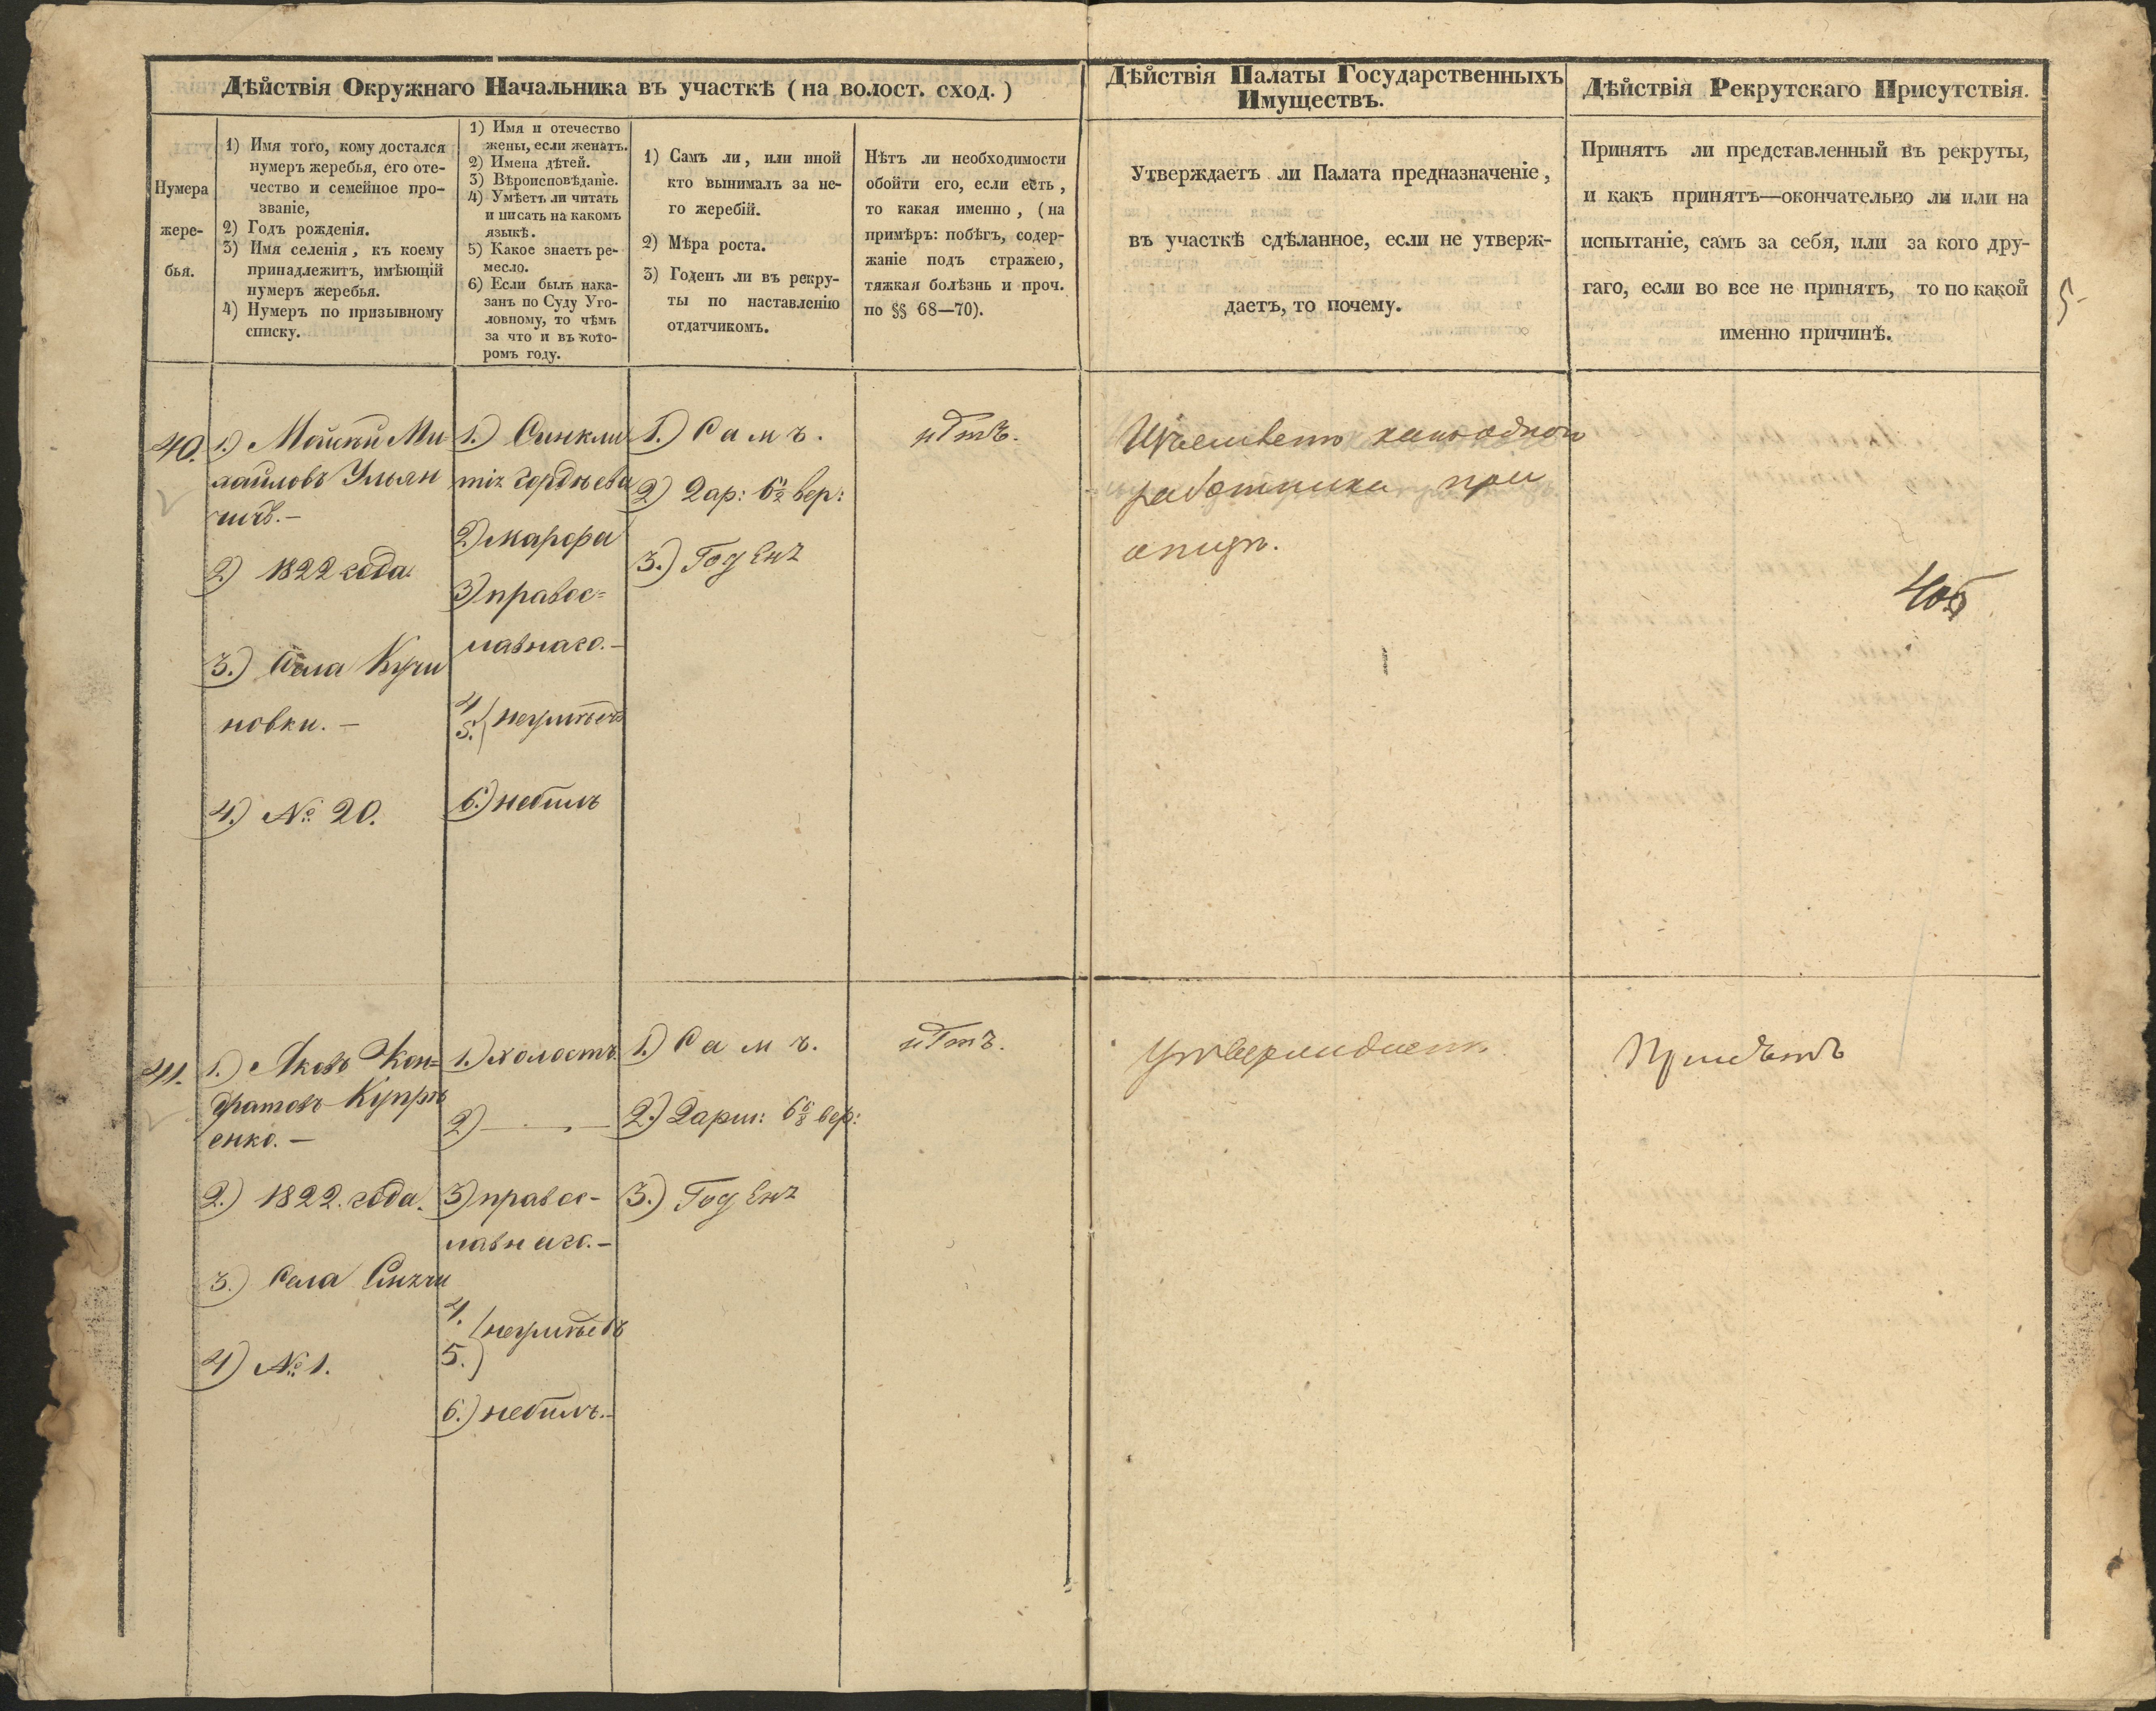 Дѣйствія Окружнаго Начальника въ участкѣ (на волост. сход.)
Нумера
жере-
бья.
1) Имя того, кому достался
нумеръ жеребья, его оте-
чество и семейное про-
званіе,
2) Годъ рожденія.
3) Имя селенія, къ коему
принадлежитъ, имѣющій
нумеръ жеребья.
4) Нумеръ по призывному
списку.
1) Имя и отечество
жены, если женатъ.
2) Имена дѣтей.
3) Вѣроисповѣданіе.
4) Умѣетъ ли читать
и писать на какомъ
языкѣ.
5) Какое знаетъ ре-
месло.
6) Если былъ нака-
занъ по Суду Уго-
ловному, то чѣмъ
за что и въ кото-
ромъ году.
1) Самъ ли, или иной
кто вынималъ за не-
го жеребій.
2) Мѣра роста.
3) Годенъ ли въ рекру-
ты по наставленію
отдатчикомъ.
Нѣтъ ли необходимости
обойти его, если есть,
то какая именно, (на
примѣръ: побѣгъ, содер-
жаніе подъ стражею,
тяжкая болѣзнь и проч.
по §§ 68—70).
Дѣйствія Палаты Государственныхъ
Имуществъ.
Утверждаетъ ли Палата предназначеніе,
въ участкѣ сдѣланное, если не утверж-
даетъ, то почему.
Дѣйствія Рекрутскаго Присутствія.
Принятъ ли представленный въ рекруты,
и какъ принятъ—окончательно ли или на
испытаніе, самъ за себя, или за кого дру-
гаго, если во все не принятъ, то по какой
именно причинѣ.
5
40.
1.) Мойсѣй Ми
хайловъ Ульян
ичъ.—
2) 1822 года
3.) Села Кучи
новки.—
4.) № 20.
1.) Синкли
тіz Гордѣева
2) марфа
3) правос=
лавнаго.—
4
5.) неумѣетъ
6.) небылъ
1.) Самъ.
2) 2 ар: 6½ вер:
3.) Годенz
нѣтъ.
работника при
405
41.
1.) Яковъ Кон=
дратовъ Купрі
енко.—
2.) 1822. года.
3.) Села
4) № 1.
1.) холостъ
2) — —
3) правос-
лавнаго.—
4.
5.) неумѣетъ
6.) небылъ.—
1.) Самъ.
2.) 2 арш: 6⅝ вер:
3.) Годенz
нѣтъ.
Утверждаетъ.